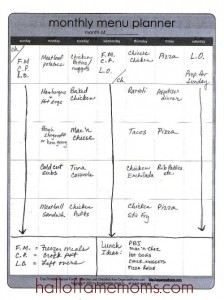 monthly menu planner
month of
sunday monday tuesday wednesday thursday friday saturday
ch.
F.M.
C.P.
L.O.
Meatloaf
potatoes
Chicken
nuggets
F.M.
C.P.
L.O.
ch.
Chinese
Chicken
Pizza
L.O.
Prep for
Sunday
Hamburgers
Hot dogs
Baked
Chicken
Ravioli
Appetizer
dinner
Mac n
cheese
Tacos
Pizza
Cold cut
subs
Tuna
Casserole
Chicken
Enchilada
Rib Patties
etc.
Meatball
Sandwich
Chicken
Chicken
Stir Fry
Pizza
F.M. = Freezer meals
C.P. = Crock pot
L.O. = Left overs
Lunch
Ideas:
PB&J
Mac 'n Chse
Hot dogs
Chix nuggets
Pizza
halloffamemoms.com